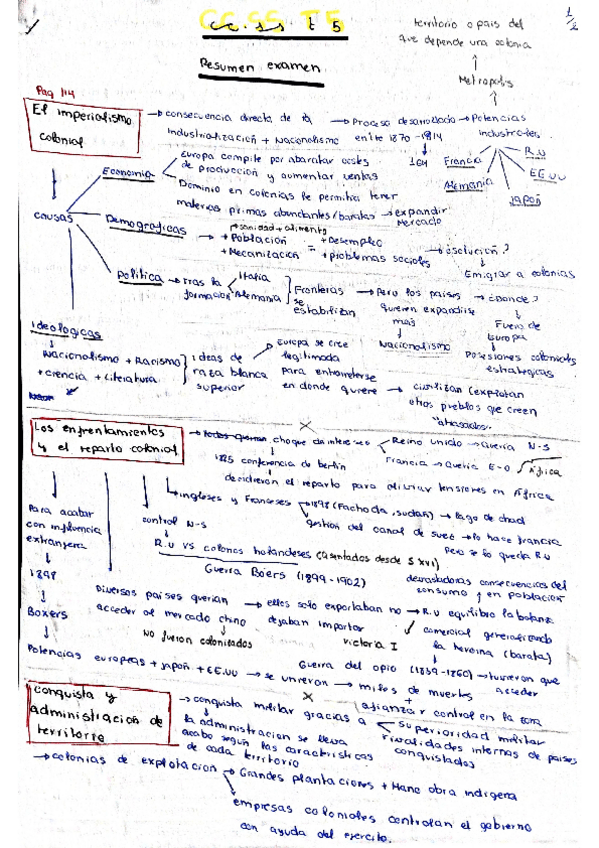 CC.SS T5
cc.ss t 5
1/2
territorio o pais del
que depende una colonia
Resumen examen
Metropolis
Pag 114
El imperialismo
colonial
consecuencia directa de la
industrialización + Nacionalismo
Proceso desarrollado
entre 1870 - 1914
1GM
Potencias
industriales
Francia
Alemania
R.U
EE.UU
JAPON
causas
Economia
Europa compite por abaratar costes
de producción y aumentar ventas
Dominio en colonias le permitia tener
materias primas abundantes/baratas
expandir
Mercado
Demograficas
+sanidad + alimento
+ Población
+ Mecanización
=
+ Desempleo
+ problemas sociales
¿solución?
Emigrar a colonias
Politica
tras la
formación
Italia
Alemania
Fronteras
se
estabilizan
Pero los paises
quieren expandirse
mas
Nacionalismo
¿Donde?
Fuera de
Europa
Posesiones coloniales
estrategicas
Ideologicas
Nacionalismo + Racismo
+ ciencia + literatura
Ideas de
raza blanca
superior
Europa se cree
legitimada
para entrometerse
en donde quiere
civilizan (explotan
otros pueblos que creen
"atrasados.
Los enfrentamientos
y el reparto colonial
choque de intereses
Reino unido → Queria N-S
Francia → Queria E-O
África
1885 conferencia de berlin
decidieron el reparto para aliviar tensiones en África
Ingleses y Franceses
1898 (Fachoda, sudan) → lago de chad
gestion del canal de suez → lo hace francia
Pero se lo queda R.U
Para acabar
con influencia
extranjera
1898
Boxers
control N-S
R.U VS colonos holandeses (asentados desde S XVI)
Guerra Boers (1899-1902)
devastadoras consecuencias del
consumo y en población
Diversos paises querian
acceder al mercado chino
No fueron colonizados
ellos solo exportaban no
dejaban importar
victoria I
R.U equilibro la balanza
comercial generalizando
la heroina (barata)
Guerra del opio (1839-1860)
tuvieron que
acceder
Potencias europeas + japon + EE.UU → se unieron → miles de muertes
+
afianzar control en la zona
conquista y
administración de
territorre
conquista militar gracias a
superioridad militar
rivalidades internas de paises
conquistados
la administracion se lleva
acabo según las caracteristicas
de cada territorio
→ colonias de explotacion
Grandes plantaciones + Mano obra indigena
empresas coloniales controlan el gobierno
con ayuda del ejercito.